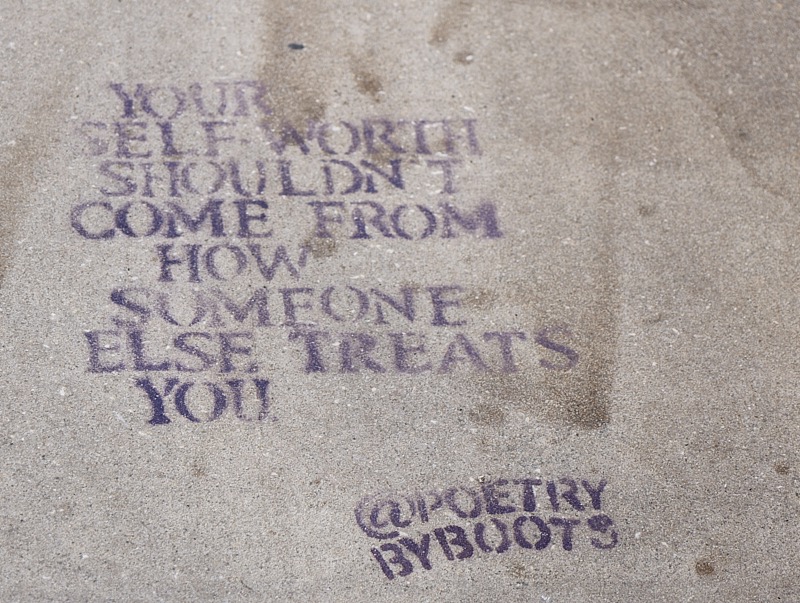 YOUR
SELF-WORTH
SHOULDN'T
COME FROM
HOW
SOMEONE
ELSE TREATS
YOU.
@POETRY
BYBOOTS